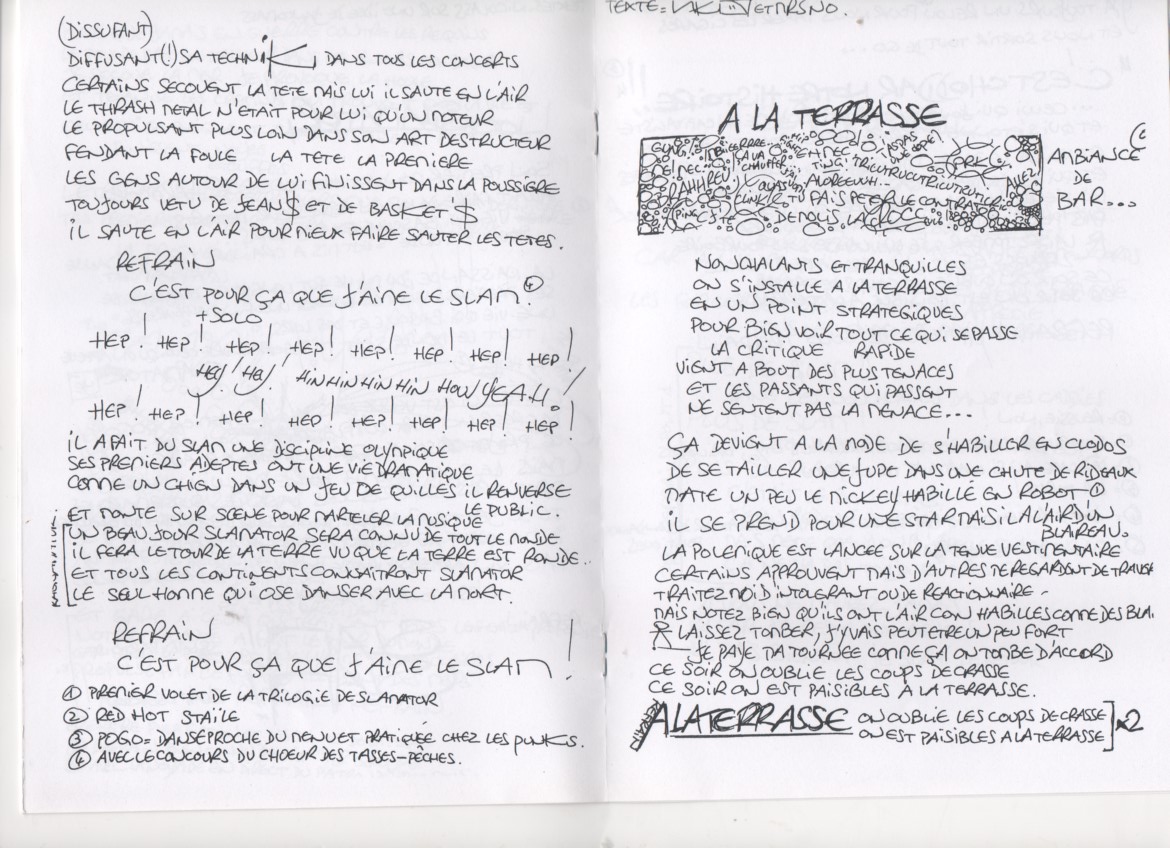 (DISSUFANT)
DIFFUSANT(!) SA TECHNIK, DANS TOUS LES CONCERTS
CERTAINS SECOUENT LA TETE MAIS LUI IL SAUTE EN L'AIR
LE THRASH METAL N'ETAIT POUR LUI QU'UN MOTEUR
LE PROPULSANT PLUS LOIN DANS SON ART DESTRUCTEUR
FENDANT LA FOULE LA TETE LA PREMIERE
LES GENS AUTOUR DE LUI FINISSENT DANS LA POUSSIERE
TOUJOURS VETU DE JEAN$ ET DE BASKET$
IL SAUTE EN L'AIR POUR MIEUX FAIRE SAUTER LES TETES.
REFRAIN
C'EST POUR ÇA QUE J'AIME LE SLAM! ④
+ SOLO
HEP! HEP! HEP! HEP! HEP! HEP! HEP! HEP!
HEY! HEY! HIN HIN HIN HIN HOW YEAH!
HEP! HEP! HEP! HEP! HEP! HEP! HEP! HEP!
IL A FAIT DU SLAM UNE DISCIPLINE OLYMPIQUE
SES PREMIERS ADEPTES ONT UNE VIE DRAMATIQUE
COMME UN CHIEN DANS UN JEU DE QUILLES IL RENVERSE
LE PUBLIC.
ET MONTE SUR SCENE POUR MARTELER LA MUSIQUE
UN BEAU JOUR SLAMATOR SERA CONNU DE TOUT LE MONDE
IL FERA LE TOUR DE LA TERRE VU QUE LA TERRE EST RONDE..
ET TOUS LES CONTINENTS CONNAITRONT SLAMATOR
LE SEUL HOMME QUI OSE DANSER AVEC LA MORT.
REFRAIN
C'EST POUR ÇA QUE J'AIME LE SLAM!
① PREMIER VOLET DE LA TRILOGIE DE SLAMATOR
② RED HOT STAÏLE
③ POGO= DANSE PROCHE DU MENUET PRATIQUÉE CHEZ LES PUNKS.
④ AVEC LE CONCOURS DU CHOEUR DES TASSES-PÊCHES.
TEXTE= ET MRS NO.
A LA TERRASSE
AMBIANCE
DE
BAR...
TU FAIS PETER LE CONTRAT
DEMOLIS LA
NONCHALANTS ET TRANQUILLES
ON S'INSTALLE A LA TERRASSE
EN UN POINT STRATEGIQUES
POUR BIEN VOIR TOUT CE QUI SE PASSE
LA CRITIQUE RAPIDE
VIENT A BOUT DES PLUS TENACES
ET LES PASSANTS QUI PASSENT
NE SENTENT PAS LA MENACE...
ÇA DEVIENT A LA MODE DE S'HABILLER EN CLODOS
DE SE TAILLER UNE JUPE DANS UNE CHUTE DE RIDEAUX
MATE UN PEU LE MICKEY HABILLÉ EN ROBOT ①
IL SE PREND POUR UNE STAR MAIS IL A L'AIR D'UN
BLAIREAU.
LA POLEMIQUE EST LANCEE SUR LA TENUE VESTIMENTAIRE
CERTAINS APPROUVENT MAIS D'AUTRES ME REGARDENT DE TRAVE
TRAITEZ MOI D'INTOLERANT OU DE REACTIONNAIRE -
MAIS NOTEZ BIEN QU'ILS ONT L'AIR CON HABILLES COMME DES BLAI
LAISSEZ TOMBER, J'Y VAIS PEUT ETRE UN PEU FORT
JE PAYE MA TOURNÉE COMME ÇA ON TOMBE D'ACCORD
CE SOIR ON OUBLIE LES COUPS DE CRASSE
CE SOIR ON EST PAISIBLES A LA TERRASSE.
REFRAIN
A LA TERRASSE ON OUBLIE LES COUPS DE CRASSE
ON EST PAISIBLES A LA TERRASSE ] x2